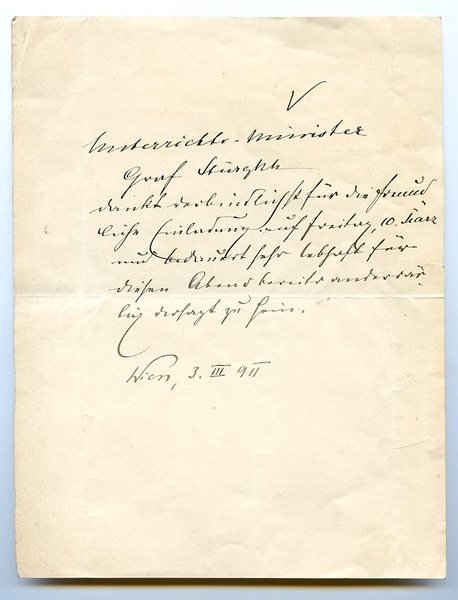 Unterrichts-Minister
Graf Stürgkh
dankt verbindlichst für die freund
liche Einladung auf Freitag, 10. März
und bedauert sehr lebhaft für
diesen Abend bereits anderwär-
tig versagt zu sein.
Wien, 3. III 911